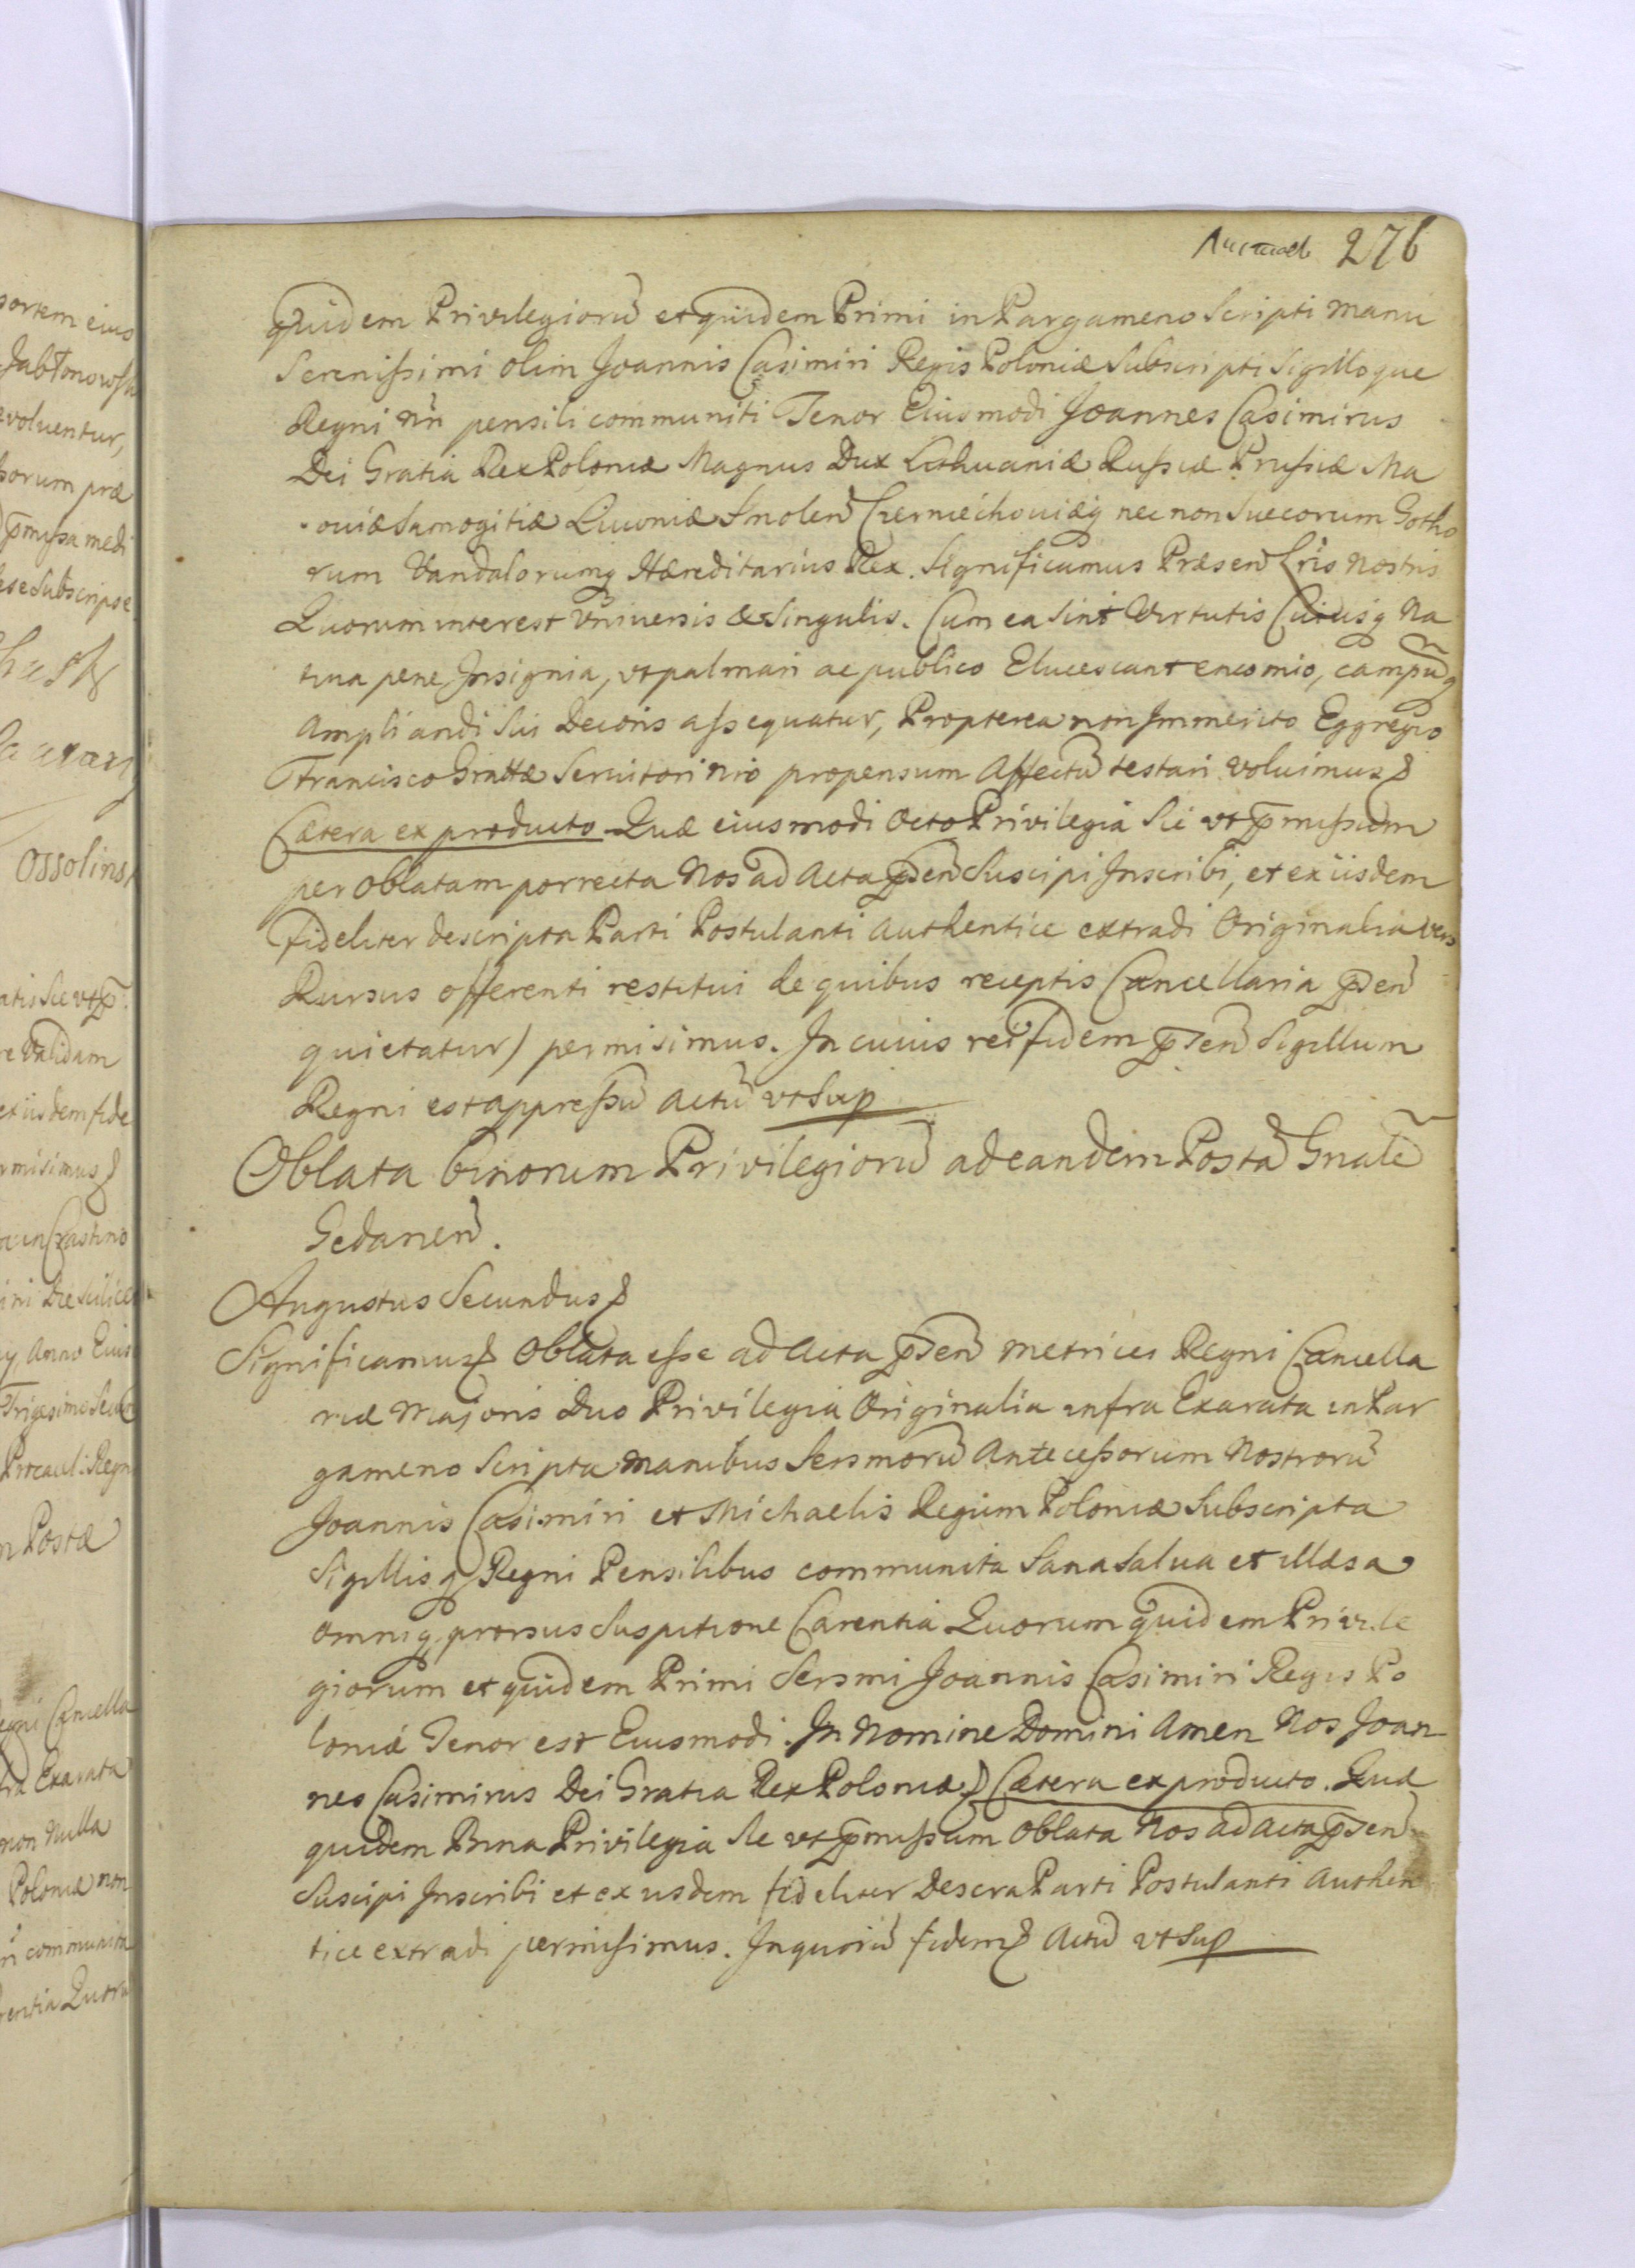 Листовъ 276
quidem Privilegiorū et quidem Primi in Pargameno Scripti manu
Serenissimi olim Joannis Casimiri Regis Poloniæ Subscripti Sigilloque
Regni nn̄ pensili communiti Tenor Eiusmodi Joannes Casimirus
Dei Gratia Rex Poloniæ Magnus Dux Lithuaniæ Russiæ Prussiæ Ma
soviæ Samogitiæ Livoniæ Smolen̄ Czerniechoviæq nec non Suecorum Gotho
rum Vandalorumq Hæreditarius Rex. Significamus Præsen̄ Lris Nostris
Quorum interest Universis & Singulis. Cum ea sint Virtutis Cuiusq Na
tiua pene Insignia, vt palmari ac publico Elucescant encomio, campūq
Ampliandi sui Decoris assequatur, Propterea non Immerito Eggregio
Francisco Grattæ Servitori nro propensum Affectū testari voluimus
Cætera ex producto Quæ eiusmodi Octo Privilegia Sic vt p̄missum
per Oblatam porrecta Nos ad Acta p̄sen̄ Suscipi Inscribi, et ex iisdem
fideliter descripta Parti Postulanti Authentice extradi Originalia vero
Rursus offerenti restitui de quibus receptis Cancellaria p̄sen̄
quietatur) permisimus. In cuius rei fidem p̄sen̄ Sigillum
Regni est appressū Actū vt Sup
Oblata binorum Privilegiorū ad eandem Postā Gnalē
Gedanen̄.
Augustus Secundus
Significamus Oblata esse ad Acta p̄sen̄ Metrices Regni Cancella
riæ Majoris Duo Privilegia Originalia infra Exarata in Par
gameno Scripta manibus Sersmorū Antecessorum Nostrorū
Joannis Casimiri et Michaelis Regum Poloniæ Subscripta
Sigillisq Regni Pensilibus communita Sana Salua et illæsa
omniq prorsus Suspitione Carentia Quorum quidem Privile
giorum et quidem Primi Sersmi Joannis Casimiri Regis Po
loniæ Tenor est Eiusmodi. In Nomine Domini Amen Nos Joan
nes Casimirus Dei Gratia Rex Poloniæ Cætera ex producto. Quæ
quidem Bina Privilegia Sic vt p̄missum Oblata Nos ad Acta p̄sen̄
Suscipi Inscribi et ex iisdem fideliter Descra Parti Postulanti Authen
tice extradi permisimus. In quorū fidem Actū vt Sup